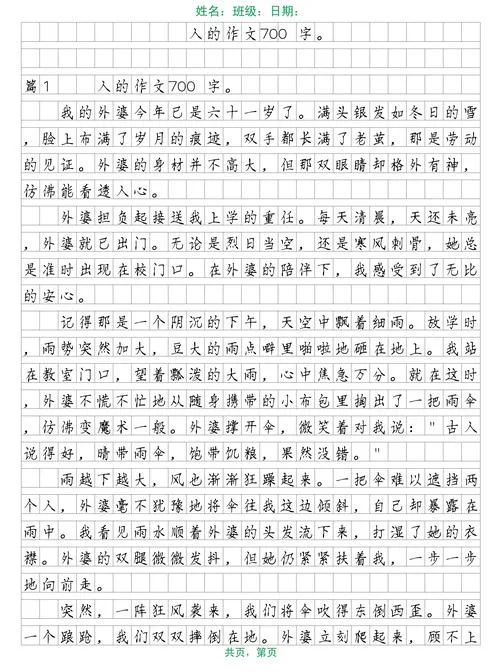 姓名：班级：日期：
人的作文700 字。
篇 1 人的作文700 字。
我的外婆今年已是六十一岁了。满头银发如冬日的雪
，脸上布满了岁月的痕迹，双手都长满了老茧，那是劳动
的见证。外婆的身材并不高大，但那双眼睛却格外有神，
仿佛能看透人心。
外婆担负起接送我上学的重任。每天清晨，天还未亮
，外婆就已出门。无论是烈日当空，还是寒风刺骨，她总
是准时出现在校门口。在外婆的陪伴下，我感受到了无比
的安心。
记得那是一个阴沉的下午，天空中飘着细雨。放学时
，雨势突然加大，豆大的雨点噼里啪啦地砸在地上。我站
在教室门口，望着瓢泼的大雨，心中焦急万分。就在这时
，外婆不慌不忙地从随身携带的小布包里掏出了一把雨伞
，仿佛变魔术一般。外婆撑开伞，微笑着对我说："古人
说得好，晴带雨伞，饱带饥粮，果然没错。"
雨越下越大，风也渐渐狂躁起来。一把伞难以遮挡两
个人，外婆毫不犹豫地将伞往我这边倾斜，自己却暴露在
雨中。我看见雨水顺着外婆的头发流下来，打湿了她的衣
襟。外婆的双腿微微发抖，但她仍紧紧扶着我，一步一步
地向前走。
突然，一阵狂风袭来，我们将伞吹得东倒西歪。外婆
一个踉跄，我们双双摔倒在地。外婆立刻爬起来，顾不上
共页，第页